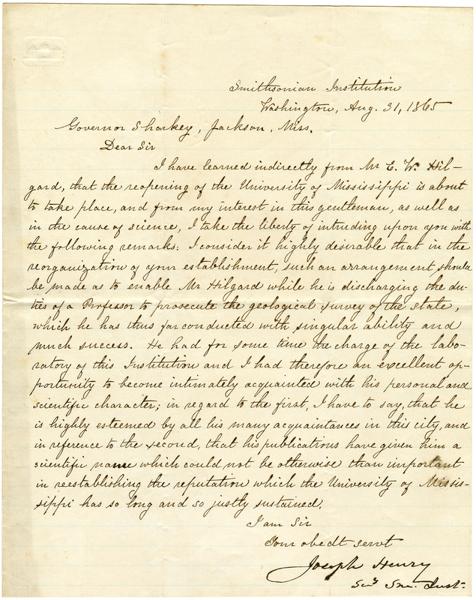 Smithsonian Institution
Washington, Aug. 31, 1865
Governor Sharkey, Jackson, Miss.
Dear Sir
I have learned indirectly from Mr E. W. Hil-
gard, that the reopening of the University of Mississippi is about
to take place, and from my interest in this gentleman, as well as
in the cause of science, I take the liberty of intruding upon you with
the following remarks: I consider it highly desirable that in the
reorganization of your establishment, such an arrangement should
be made as to enable Mr Hilgard while he is discharging the du-
ties of a Professor to prosecute the geological survey of the state,
which he has thus far conducted with singular ability and
much success. He had for some time the charge of the labo-
ratory of this Institution and I had therefore an excellent op-
portunity to become intimately acquainted with his personal and
scientific character; in regard to the first, I have to say, that he
is highly esteemed by all his many acquaintances in this city, and
in reference to the second, that his publications have given him a
scientific name which could not be otherwise than important
in reestablishing the reputation which the University of Missis-
sippi has so long and so justly sustained.
I am Sir
Your obedt servt
Joseph Henry
Secy Sm. Inst.